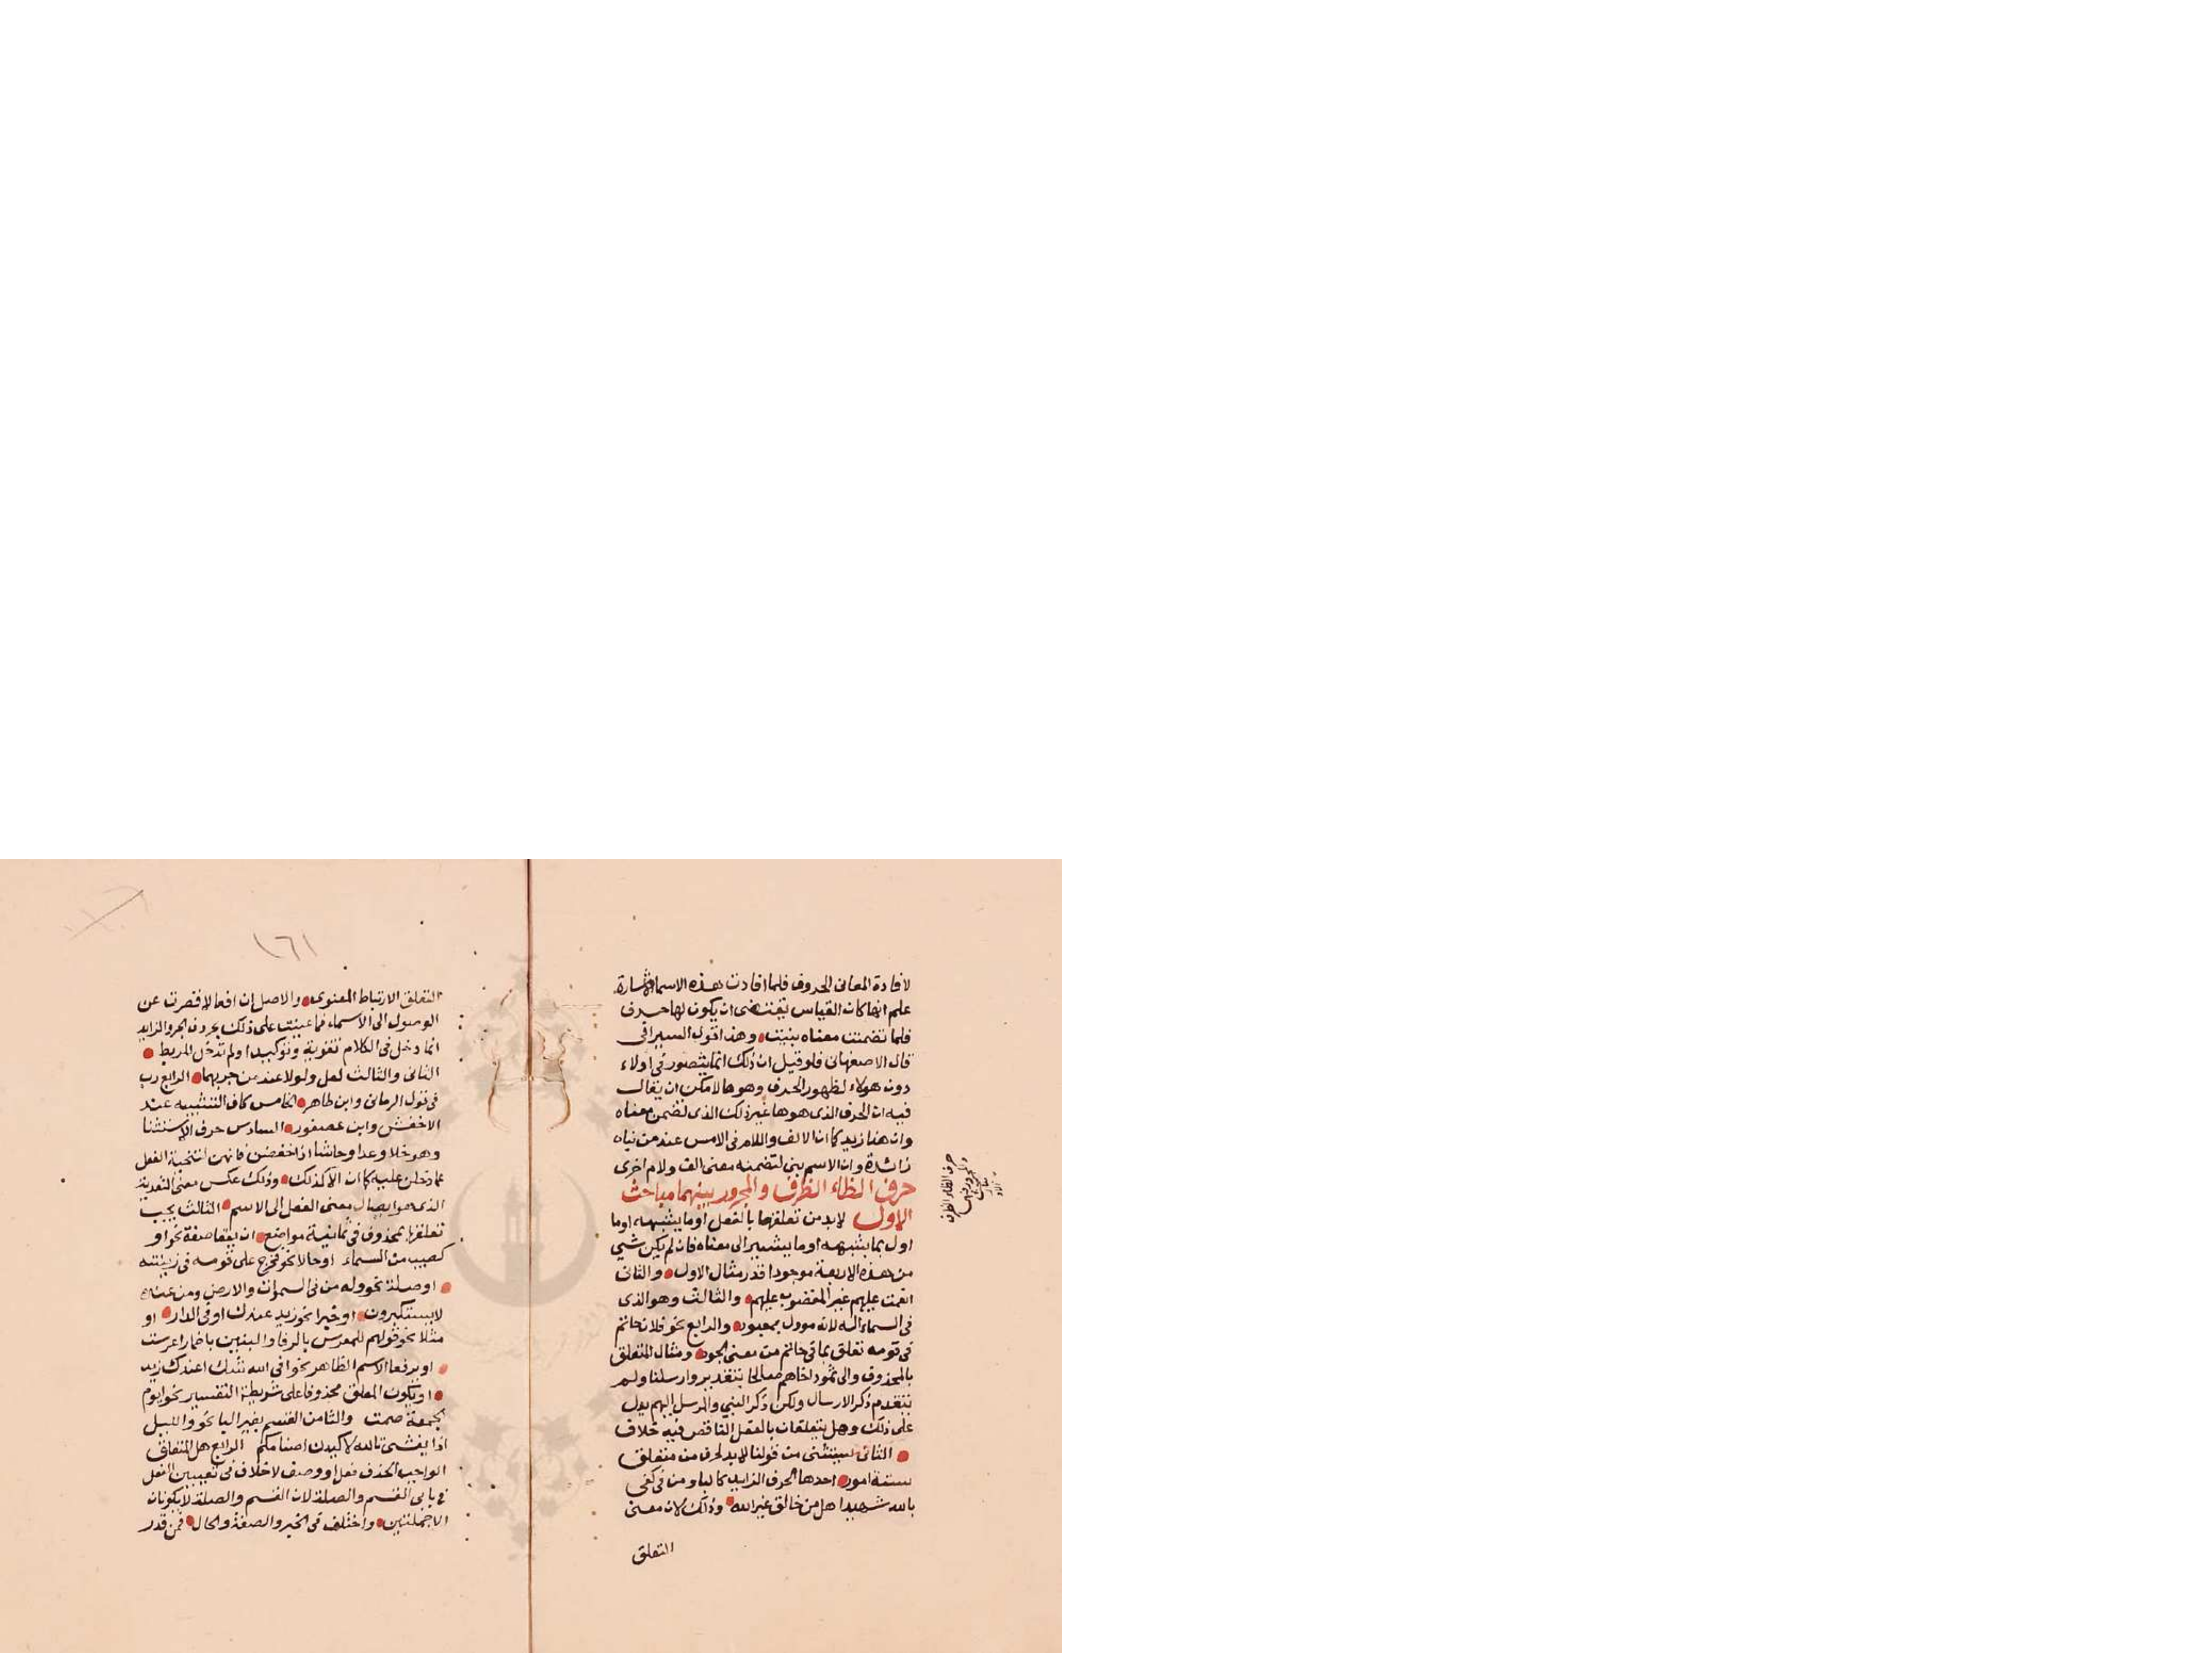 لافادة المعانى الحروف فلما افادت هذه الاسما الاشارة
علم انها كان القياس يقتضى ان يكون لها حرف
فلما تضمنت معناه بنيت وهذا قول السيرافى
قال الاصفهانى فلو قيل ان ذلك انما يتصور فى اولاء
دون هولاء لظهور الحرف وهو ها لامكن ان يقال
فيه ان الحرف الذى هو ها غير ذلك الذى تضمن معناه
وان هنا زيد كما ان الالف واللام فى الامس عند من بناه
زائدة وان الاسم بنى لتضمنه معنى الف ولام اخرى
حرف الظاء الظرف والمجرور بينهما مباحث
الاول لابد من تعلقها بالفعل او ما يشبهه او ما
اول بما يشبهه او ما يشير الى معناه فان لم يكن شى
من هذه الاربعة موجودا قدر مثال الاول والثانى
انعمت عليهم غير المغضوب عليهم والثالث وهو الذى
فى السماء اله لانه موول بمعبود والرابع نحو فلان حاتم
فى قومه تعلق بما فى حاتم من معنى الجود ومثال المتعلق
بالمحذوف والى ثمود اخاهم صالحا بتقدير وارسلنا ولم
يتقدم ذكر الارسال ولكن ذكر النبى والمرسل اليهم يدل
على ذلك وهل يتعلقان بالفعل الناقص فيه خلاف
الثانى يستثنى من قولنا لابد لحرف من متعلق
ستة امور احدها الحرف الزايد كالباو من فى كفى
بالله شهيدا هل من خالق غير الله وذلك لان معنى
التعلق
حرف الظاء الظرف
١٦١
التعلق الارتباط المعنوى والاصل ان افعالا قصرت عن
الوصول الى الاسماء فاعينت على ذلك بحروف الجر والزايد
انما دخل فى الكلام تقوية وتوكيدا ولم تدخل للربط
الثانى والثالث لعل ولولا عند من جر بهما الرابع رب
فى قول الرمانى وابن طاهر الخامس كاف التشبيه عند
الاخفش وابن عصفور السادس حرف الاستثنا
وهو خلا وعدا وحاشا اذا خفضن فانهن لتنحية الفعل
عما دخلن عليه كما ان الا كذلك وذلك عكس معنى التعدية
الذى هو ايصال معنى الفعل الى الاسم الثالث يجب
تعلقها بمحذوف فى ثمانية مواضع ان يقعا صفة نحو او
كصيب من السماء او حالا نحو فخرج على قومه فى زينته
او صلة نحو وله من فى السموات والارض ومن عنده
لا يستكبرون او خبرا نحو زيد عندك او فى الدار او
مثلا نحو قولهم للمعرس بالرفا والبنين باضمار اعرست
او يرفعا الاسم الظاهر نحو افى الله شك اعندك زيد
او يكون المعلق محذوفا على شريطة التفسير نحو ايوم
الجمعة صمت والثامن القسم بغير البا نحو والليل
اذا يغشى تالله لاكيدن اصنامكم الرابع هل المتعلق
الواجب الحذف فعل او وصف لا خلاف فى تعيين الفعل
فى بابى القسم والصلة لان القسم والصلة لا يكونان
الا جملتين واختلف فى الخبر والصفة والحال فمن قدر